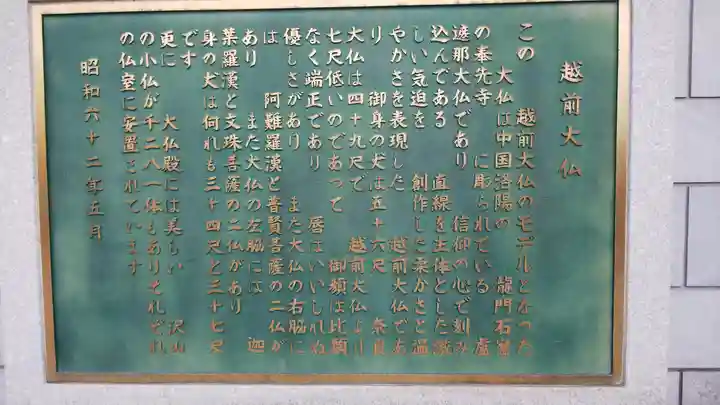 越前大仏
この　越前大仏のモデルとなった
大仏は中国洛陽の　龍門石窟
の奉先寺　に彫られている　盧
遮那大仏であり　信仰の心で刻み
込んである　直線を主体とした激
しい気迫を　創作した柔かさと温
やかさを表現した　越前大仏であ
り　御身の丈は五十六尺　奈良
大仏は四十九尺で　越前大仏より
七尺低いのであって　御顔は比類
なく端正であり　唇はいいしれぬ
優しさがあり　また大仏の右脇に
は　阿難羅漢と普賢菩薩の二仏が
あり　また大仏の左脇には　迦
葉羅漢と文珠菩薩の二仏があり
身の丈は何れも三十四尺と三十七尺
です
更に　大仏殿には美しい　沢山
の小仏が千二八一体もありそれぞれ
の仏室に安置されています
昭和六十二年五月